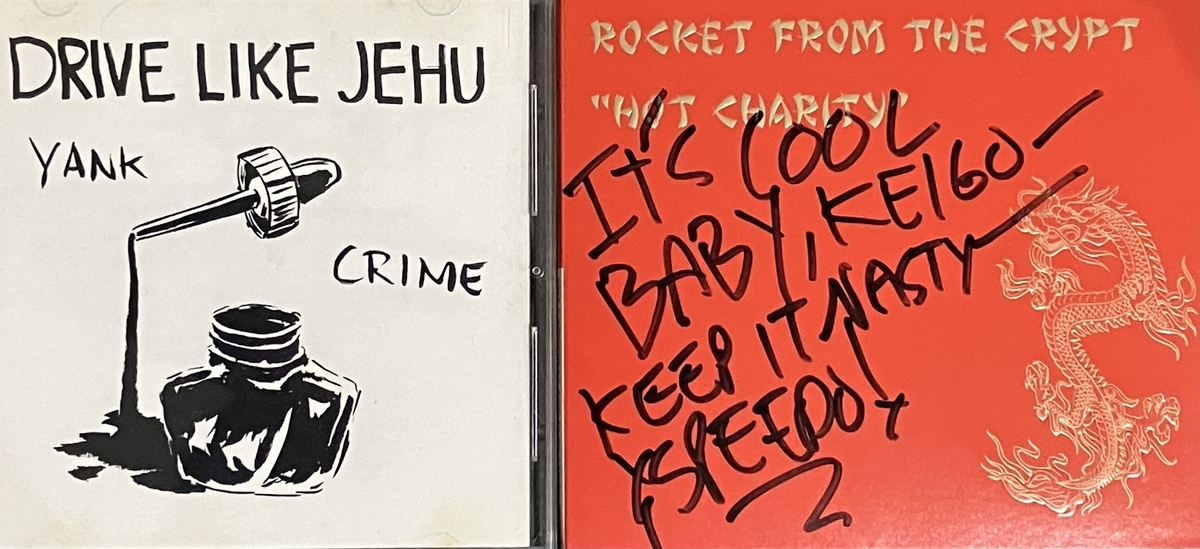 DRIVE LIKE JEHU
YANK
CRIME
ROCKET FROM THE CRYPT
"HOT CHARITY"
IT'S COOL
BABY, KEIGO—
KEEP IT NASTY
SPEEDO!